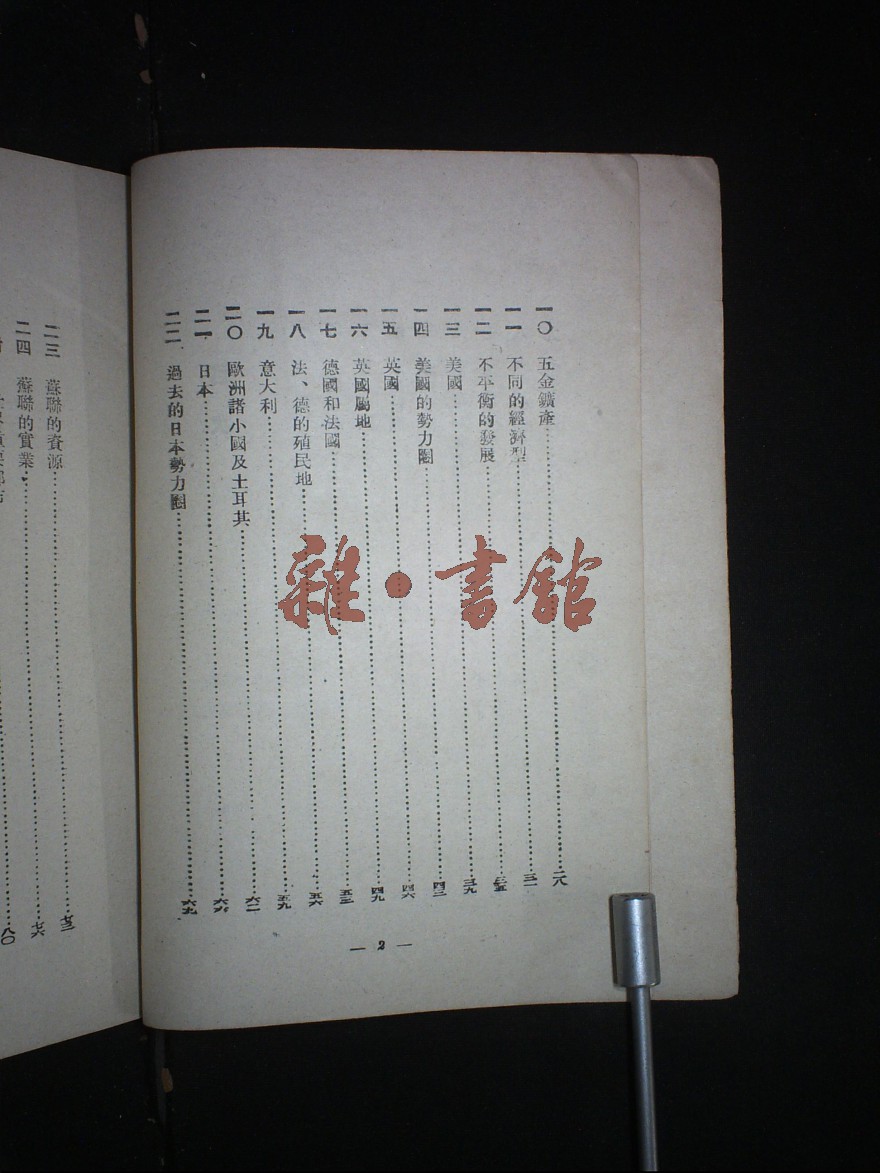 一〇 五金鑛產……二八
一一 不同的經濟型……三一
一二 不平衡的發展……三五
一三 美國……三九
一四 美國的勢力圈……四三
一五 英國……四六
一六 英國屬地……四九
一七 德國和法國……五三
一八 法、德的殖民地……五六
一九 意大利……五九
二〇 歐洲諸小國及土耳其……六二
二一 日本……六六
二二 過去的日本勢力圈……六九
— 2 —
二三 蘇聯的資源……七三
二四 蘇聯的實業……七六
八〇
雜·書館